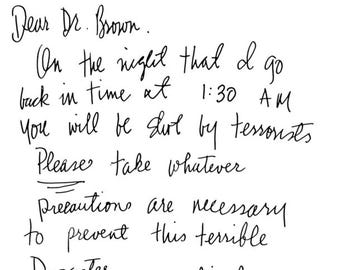 Dear Dr. Brown.
On the night that I go
back in time at 1:30 AM
you will be shot by terrorists
Please take whatever
precautions are necessary
to prevent this terrible